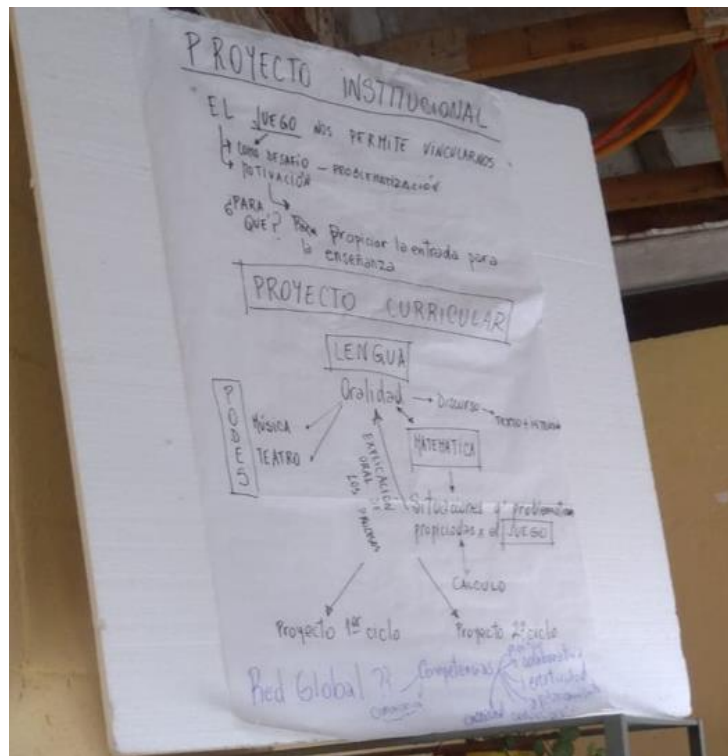 PROYECTO INSTITUCIONAL
EL JUEGO NOS PERMITE VINCULARNOS
COMO DESAFÍO – PROBLEMATIZACIÓN
MOTIVACIÓN
¿PARA QUE? Para propiciar la entrada para
la enseñanza
PROYECTO CURRICULAR
LENGUA
Oralidad
DISCURSO
PODES
MÚSICA
TEATRO
MATEMATICA
EXPLICACIÓN
ORAL DE
LOS
Situaciones q'
propiciadas x el JUEGO
CÁLCULO
Proyecto 1er ciclo
Proyecto 2º ciclo
Red Global ??
Competencias